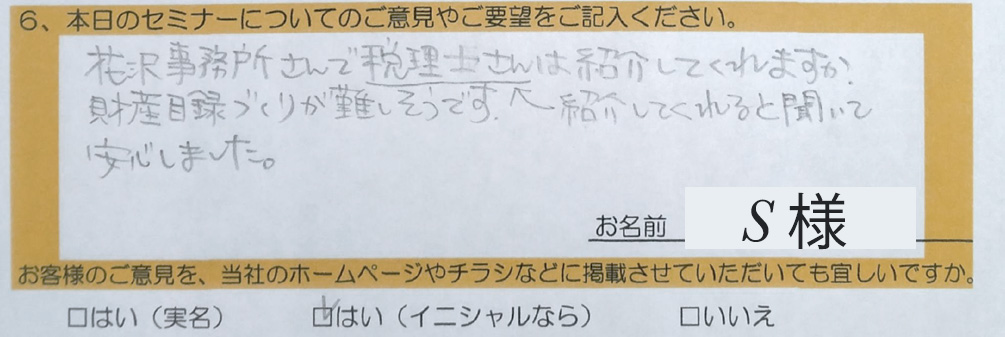 6、本日のセミナーについてのご意見やご要望をご記入ください。
花沢事務所さんで税理士さんは紹介してくれますか.
財産目録づくりが難しそうです. へ 紹介してくれると聞いて
安心しました。
お名前 S様
お客様のご意見を、当社のホームページやチラシなどに掲載させていただいても宜しいですか。
□はい（実名） ☑はい（イニシャルなら） □いいえ